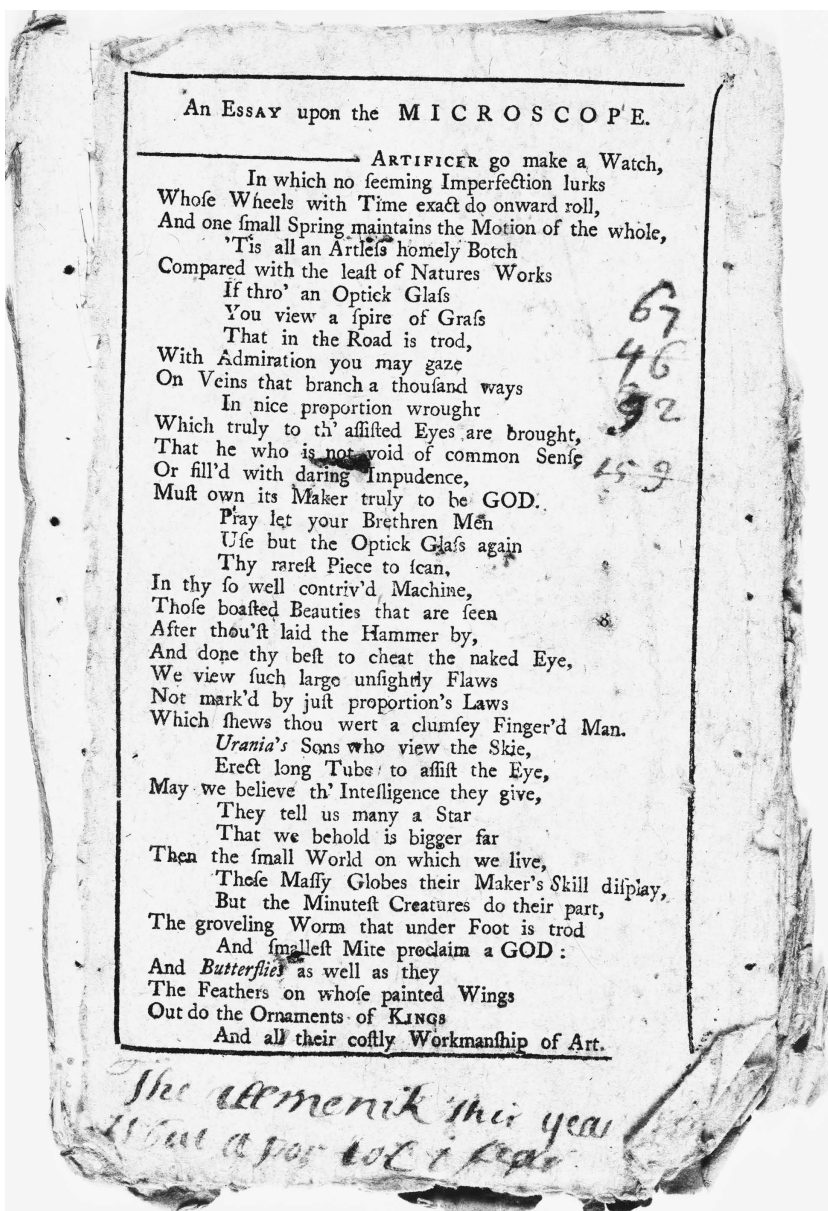 An ESSAY upon the MICROSCOPE.
ARTIFICER go make a Watch,
In which no ſeeming Imperfection lurks
Whoſe Wheels with Time exact do onward roll,
And one ſmall Spring maintains the Motion of the whole,
'Tis all an Artleſs homely Botch
Compared with the leaſt of Natures Works
If thro' an Optick Glaſs
You view a ſpire of Graſs
That in the Road is trod,
With Admiration you may gaze
On Veins that branch a thouſand ways
In nice proportion wrought
Which truly to th' aſſiſted Eyes are brought,
That he who is not void of common Senſe
Or fill'd with daring Impudence,
Muſt own its Maker truly to be GOD.
Pray let your Brethren Men
Uſe but the Optick Glaſs again
Thy rareſt Piece to ſcan,
In thy ſo well contriv'd Machine,
Thoſe boaſted Beauties that are ſeen
After thou'ſt laid the Hammer by,
And done thy beſt to cheat the naked Eye,
We view ſuch large unſightly Flaws
Not mark'd by juſt proportion's Laws
Which ſhews thou wert a clumſey Finger'd Man.
Urania's Sons who view the Skie,
Erect long Tube to aſſiſt the Eye,
May we believe th' Intelligence they give,
They tell us many a Star
That we behold is bigger far
Then the ſmall World on which we live,
Theſe Maſſy Globes their Maker's Skill diſplay,
But the Minuteſt Creatures do their part,
The groveling Worm that under Foot is trod
And ſmalleſt Mite proclaim a GOD :
And Butterflies as well as they
The Feathers on whoſe painted Wings
Out do the Ornaments of KINGS
And all their coſtly Workmanſhip of Art.
67
46
The this year
i fear